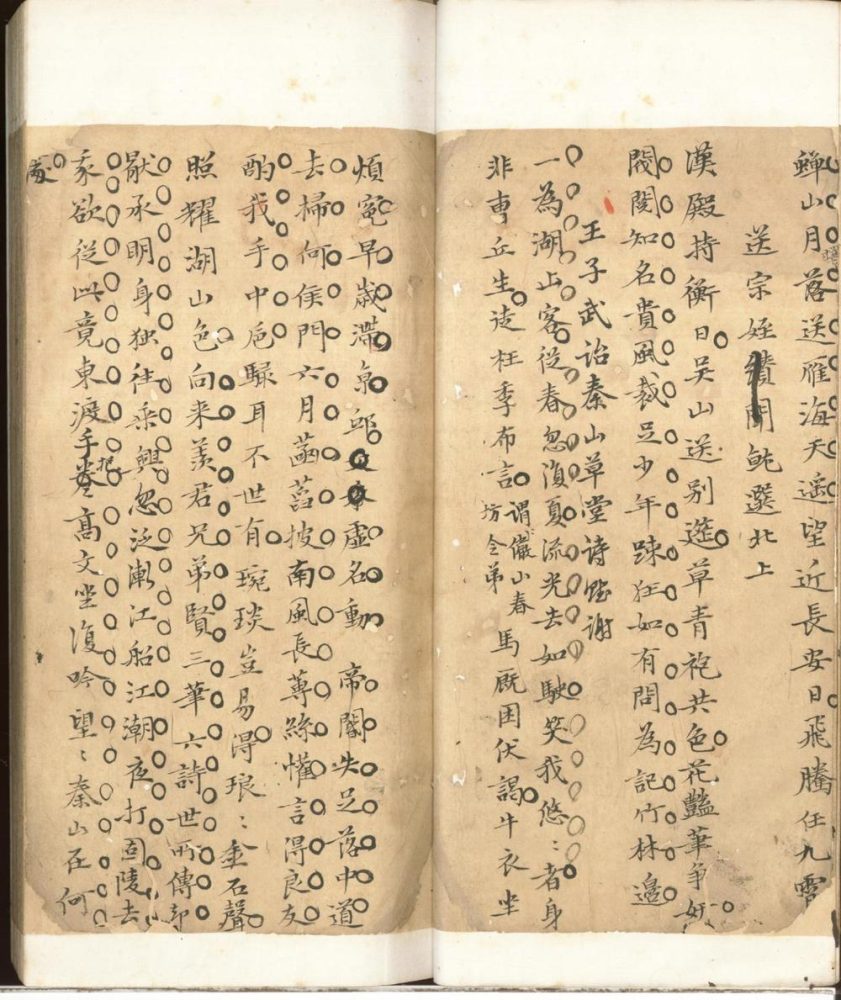 蟬山月落送雁海天遥望近長安日飛騰任九霄
送宗姪績開鈍選北上
漢殿持衡日吴山送别筵草青袍共色花豔筆争妍
閥閲知名貴風裁足少年踈狂如有問為記竹林邉
王子武詒秦山草堂诗賦謝
一為湖上客從春忽復夏流光去如駛笑我悠〻者身
非専丘生徒枉季布言謂儼山春坊令弟馬厩困伏謁牛衣坐
煩冤早歳滞京邸虚名動帝閽失足落中道
去掃何侯門六月菡萏披南風長蓴絲懽言得良友
酌我手中巵騄耳不世有琬琰豈易得琅〻金石聲
照耀湖山色向来羡君兄弟賢三華六詩世所傳却
猒承明身独往乗興忽泛浙江船江潮夜打固陵去
我欲從此竟東渡手把卷高文坐復吟望〻秦山在何
處